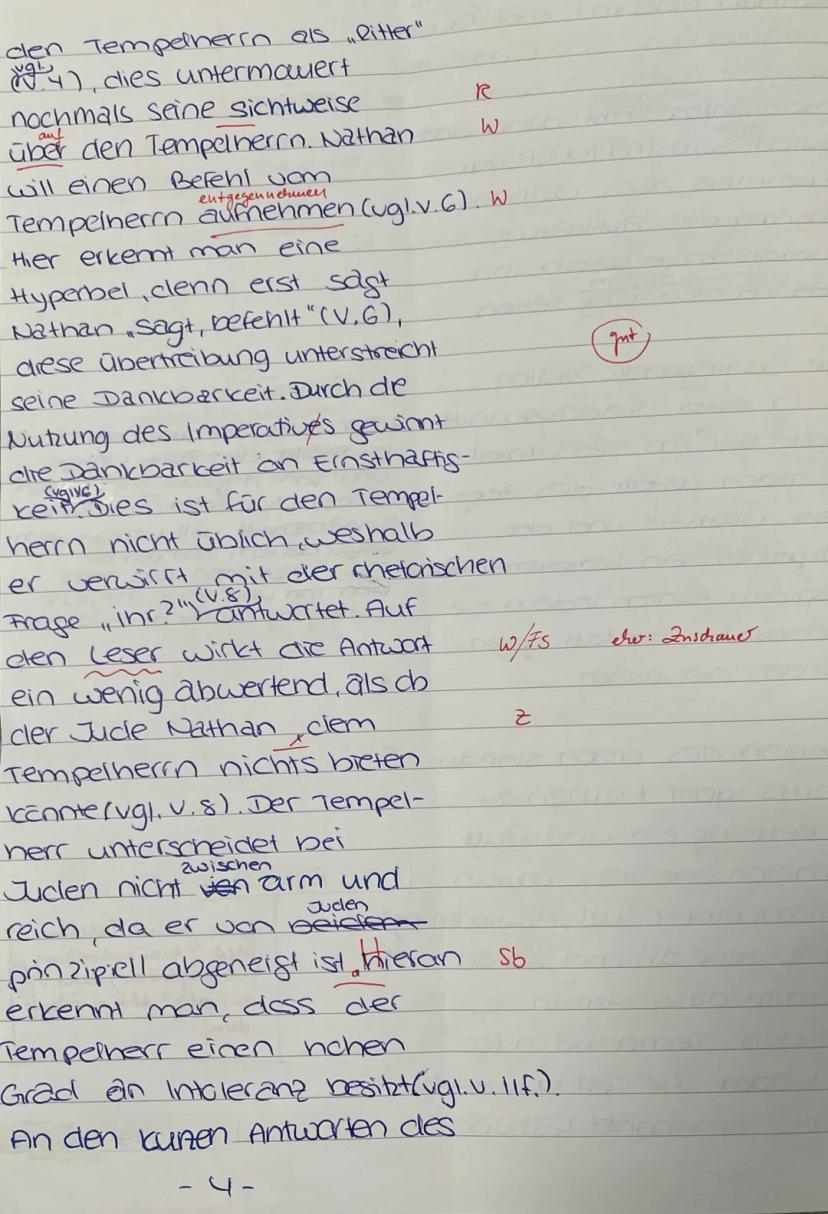 den Tempelherrn als „Ritter"
vgl.
(V.4), dies untermauert
nochmals seine sichtweise R
auf
über den Tempelherrn. Nathan W
will einen Befehl vom
entgegennehmen
Tempelherrn aufnehmen (vgl.V.6). W
Hier erkennt man eine
Hyperbel, denn erst sagt
Nathan „sagt, befehlt" (V.6),
diese Übertreibung unterstreicht gut
seine Dankbarkeit. Durch die
Nutzung des Imperatives gewinnt
die Dankbarkeit an Ernsthaftig-
(vgl.V6)
keit. Dies ist für den Tempel-
herrn nicht üblich, weshalb
er verwirrt mit der rhetorischen
(V.8)
Frage „ihr?" antwortet. Auf
den Leser wirkt die Antwort W/FS eher: Zuschauer
ein wenig abwertend, als ob
der Jude Nathan, dem Z
Tempelherrn nichts bieten
könnte (vgl. V.8). Der Tempel-
herr unterscheidet bei
zwischen
Juden nicht von arm und
Juden
reich, da er von beidem
prinzipiell abgeneigt ist. Hieran Sb
erkennt man, dass der
Tempelherr einen hohen
Grad an Intoleranz besitzt (vgl. V. 11f.).
An den kurzen Antworten des
- 4 -